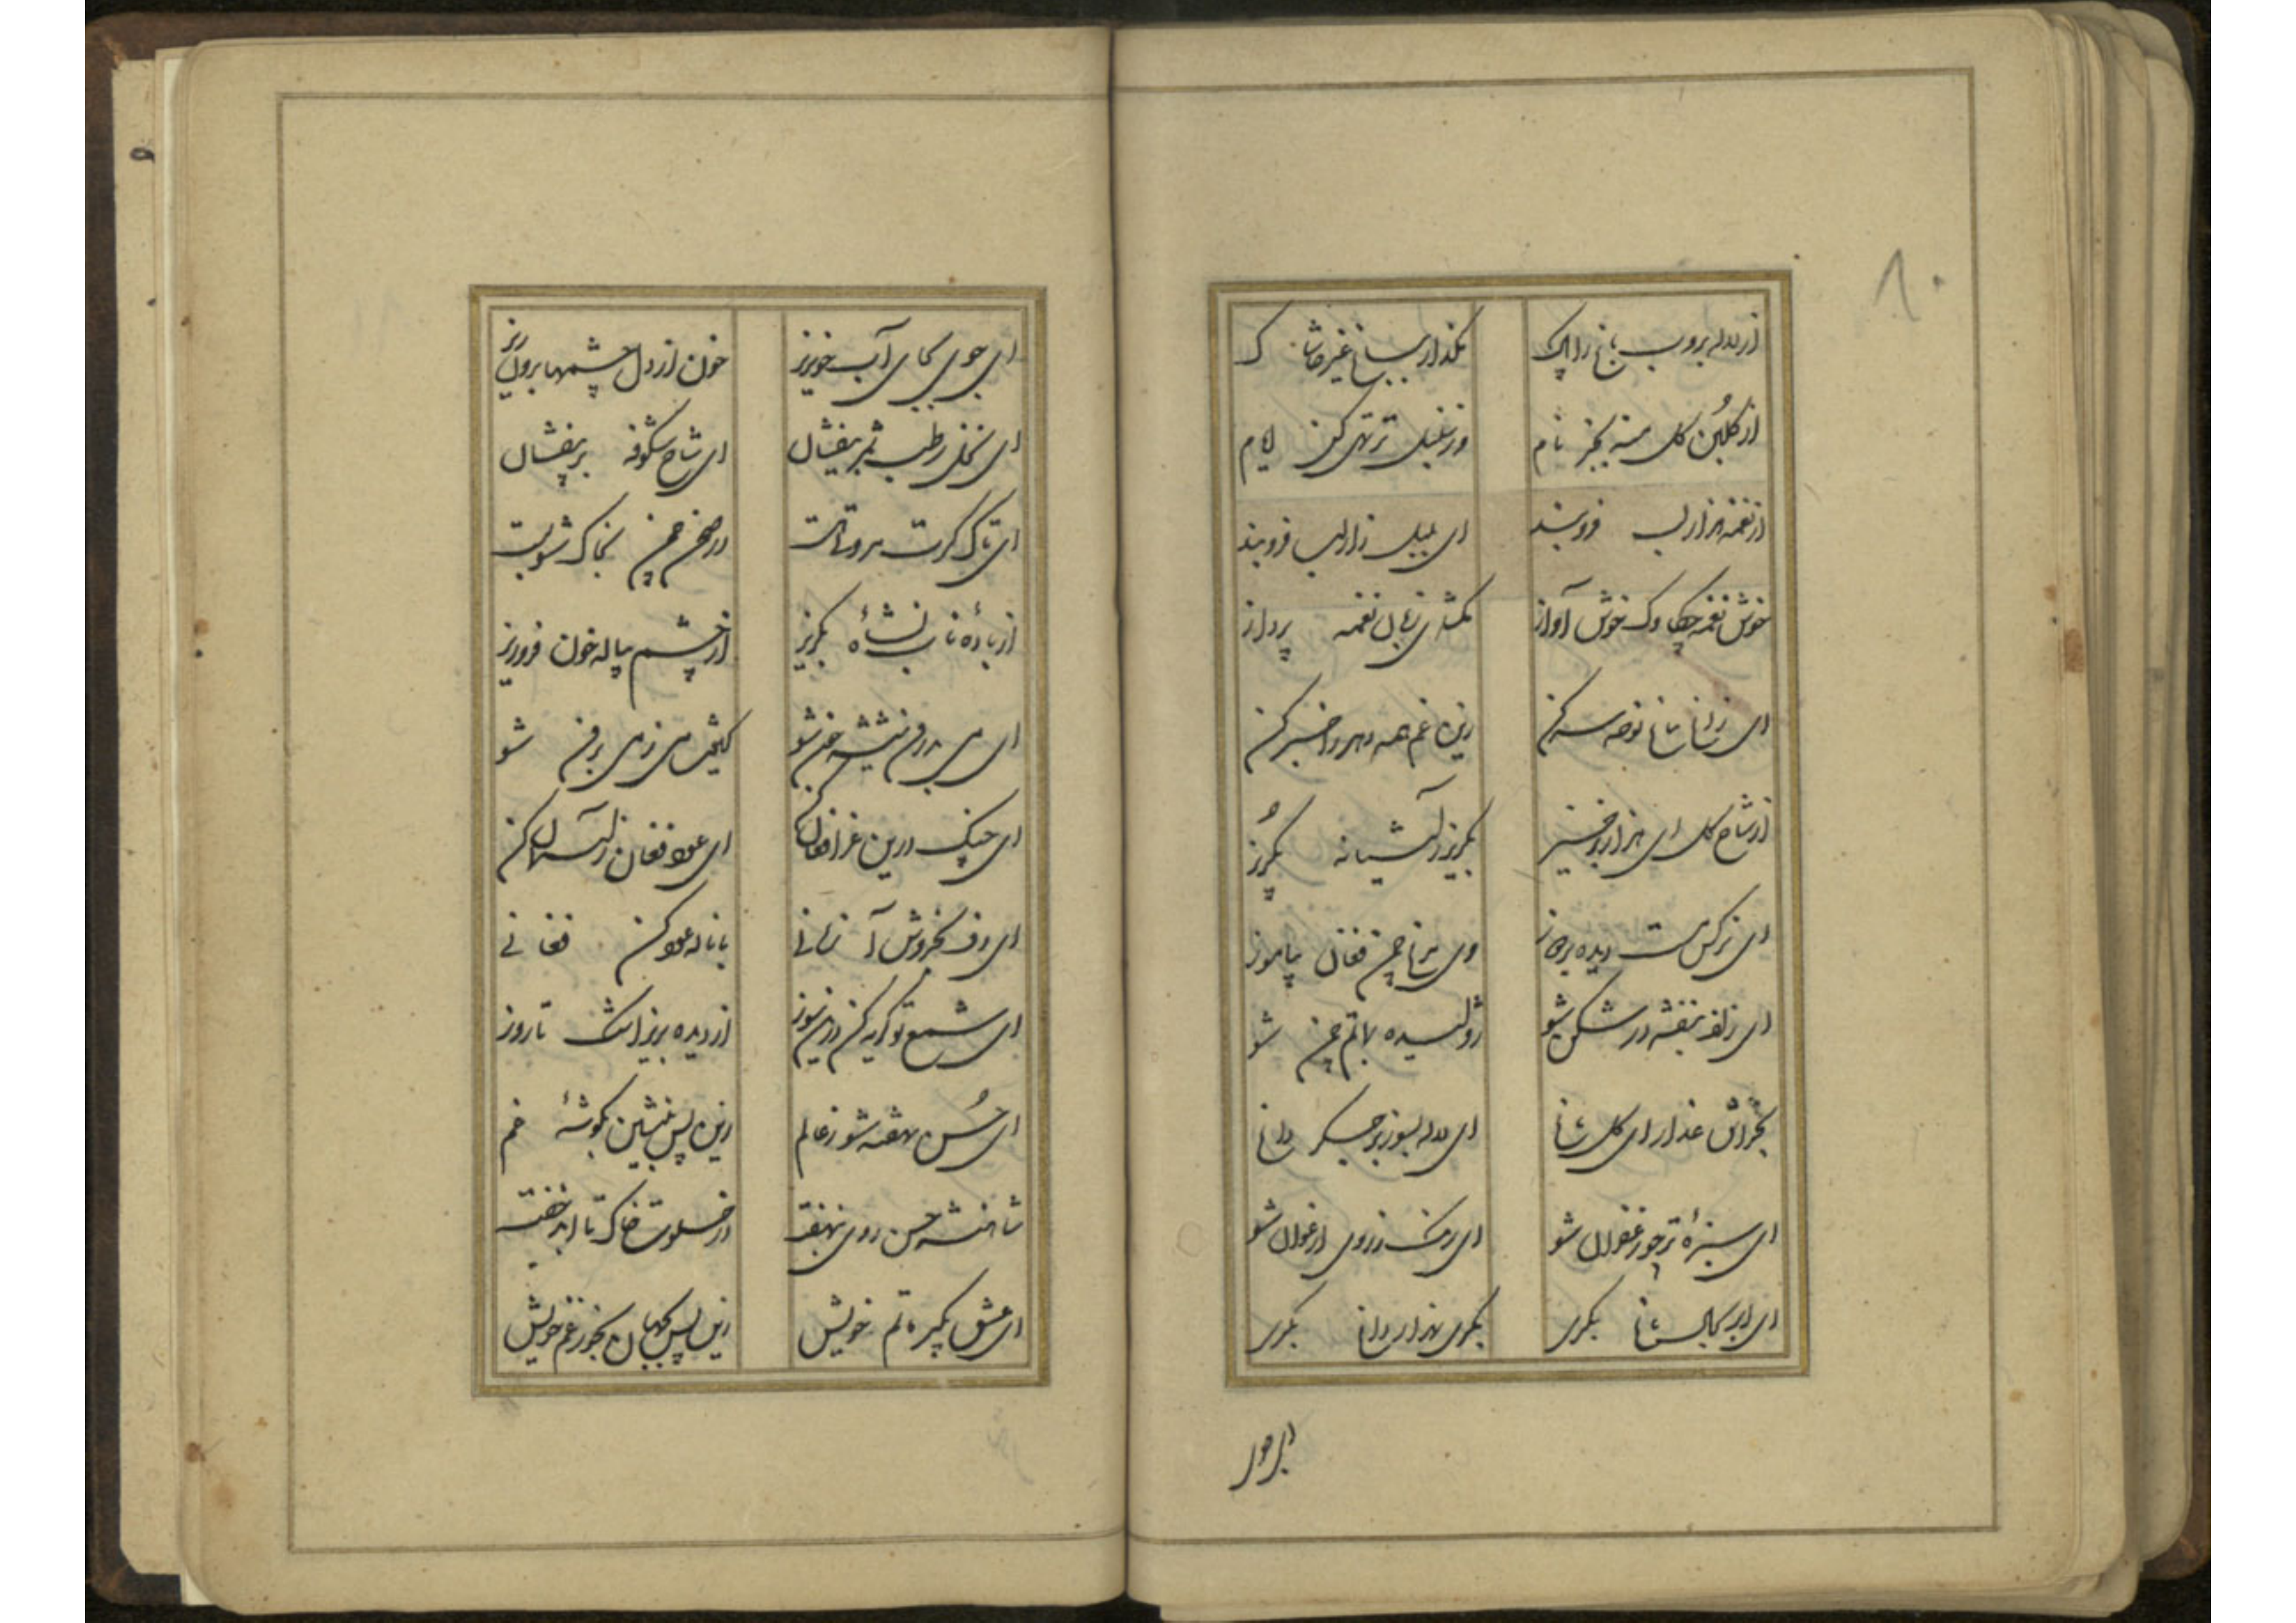 ۸۰
از لاله بروب باغ را پاک بگذار بباغ غیر خاشاک
از گلبن گل منه بجز نام وز سنبل تر تهی کن ایام
از نغمه هزار لب فروبند ای بلبل زار لب فروبند
خوش نغمه چکاوک خوش آواز مگشای زبان نغمه پرداز
ای زاغ بباغ نوحه سر کن زین غم همه دهر را خبر کن
از شاخ گل ای هزار برخیز بگریز ز آشیانه بگریز
ای نرگس مست دیده بردوز وی مرغ چمن فغان بیاموز
ای زلف بنفشه در شکن شو ژولیده بماتم چمن شو
بخراش عذار ای گل باغ ای لاله بسوز بر جگر داغ
ای سبزهٔ تر چو زعفران شو ای رنگ ز روی ارغوان شو
ای ابر بباغ بگری بگری هزار داغ بگری
ای جوی
ای جوی بجای آب خون ریز خون از دل چشمها برون ریز
ای نخل رطب ثمر بیفشان ای شاخ شکوفه بر بیفشان
ای تاک گرت سر و تنت در صحن چمن بخاک شو پست
از بادهٔ ناب نشأه بگریز از چشم پیاله خون فرو ریز
ای می بدرون شیشه خون شو کیفیت می ز می برون شو
ای چنگ درین عزا فغان کن ای عود فغان ز آسمان کن
ای دف بخروش آ زمانی با ناله عود کن فغانی
ای شمع تو گریه کن درین سوز از دیده بریز اشک تا روز
ای حسن نهفته شو ز عالم زین پس بنشین بگوشهٔ غم
شاهنشه حسن روی نهفت در خلوت خاک تا ابد خفت
ای عشق بگیر ماتم خویش زین پس بجهان بخور غم خویش